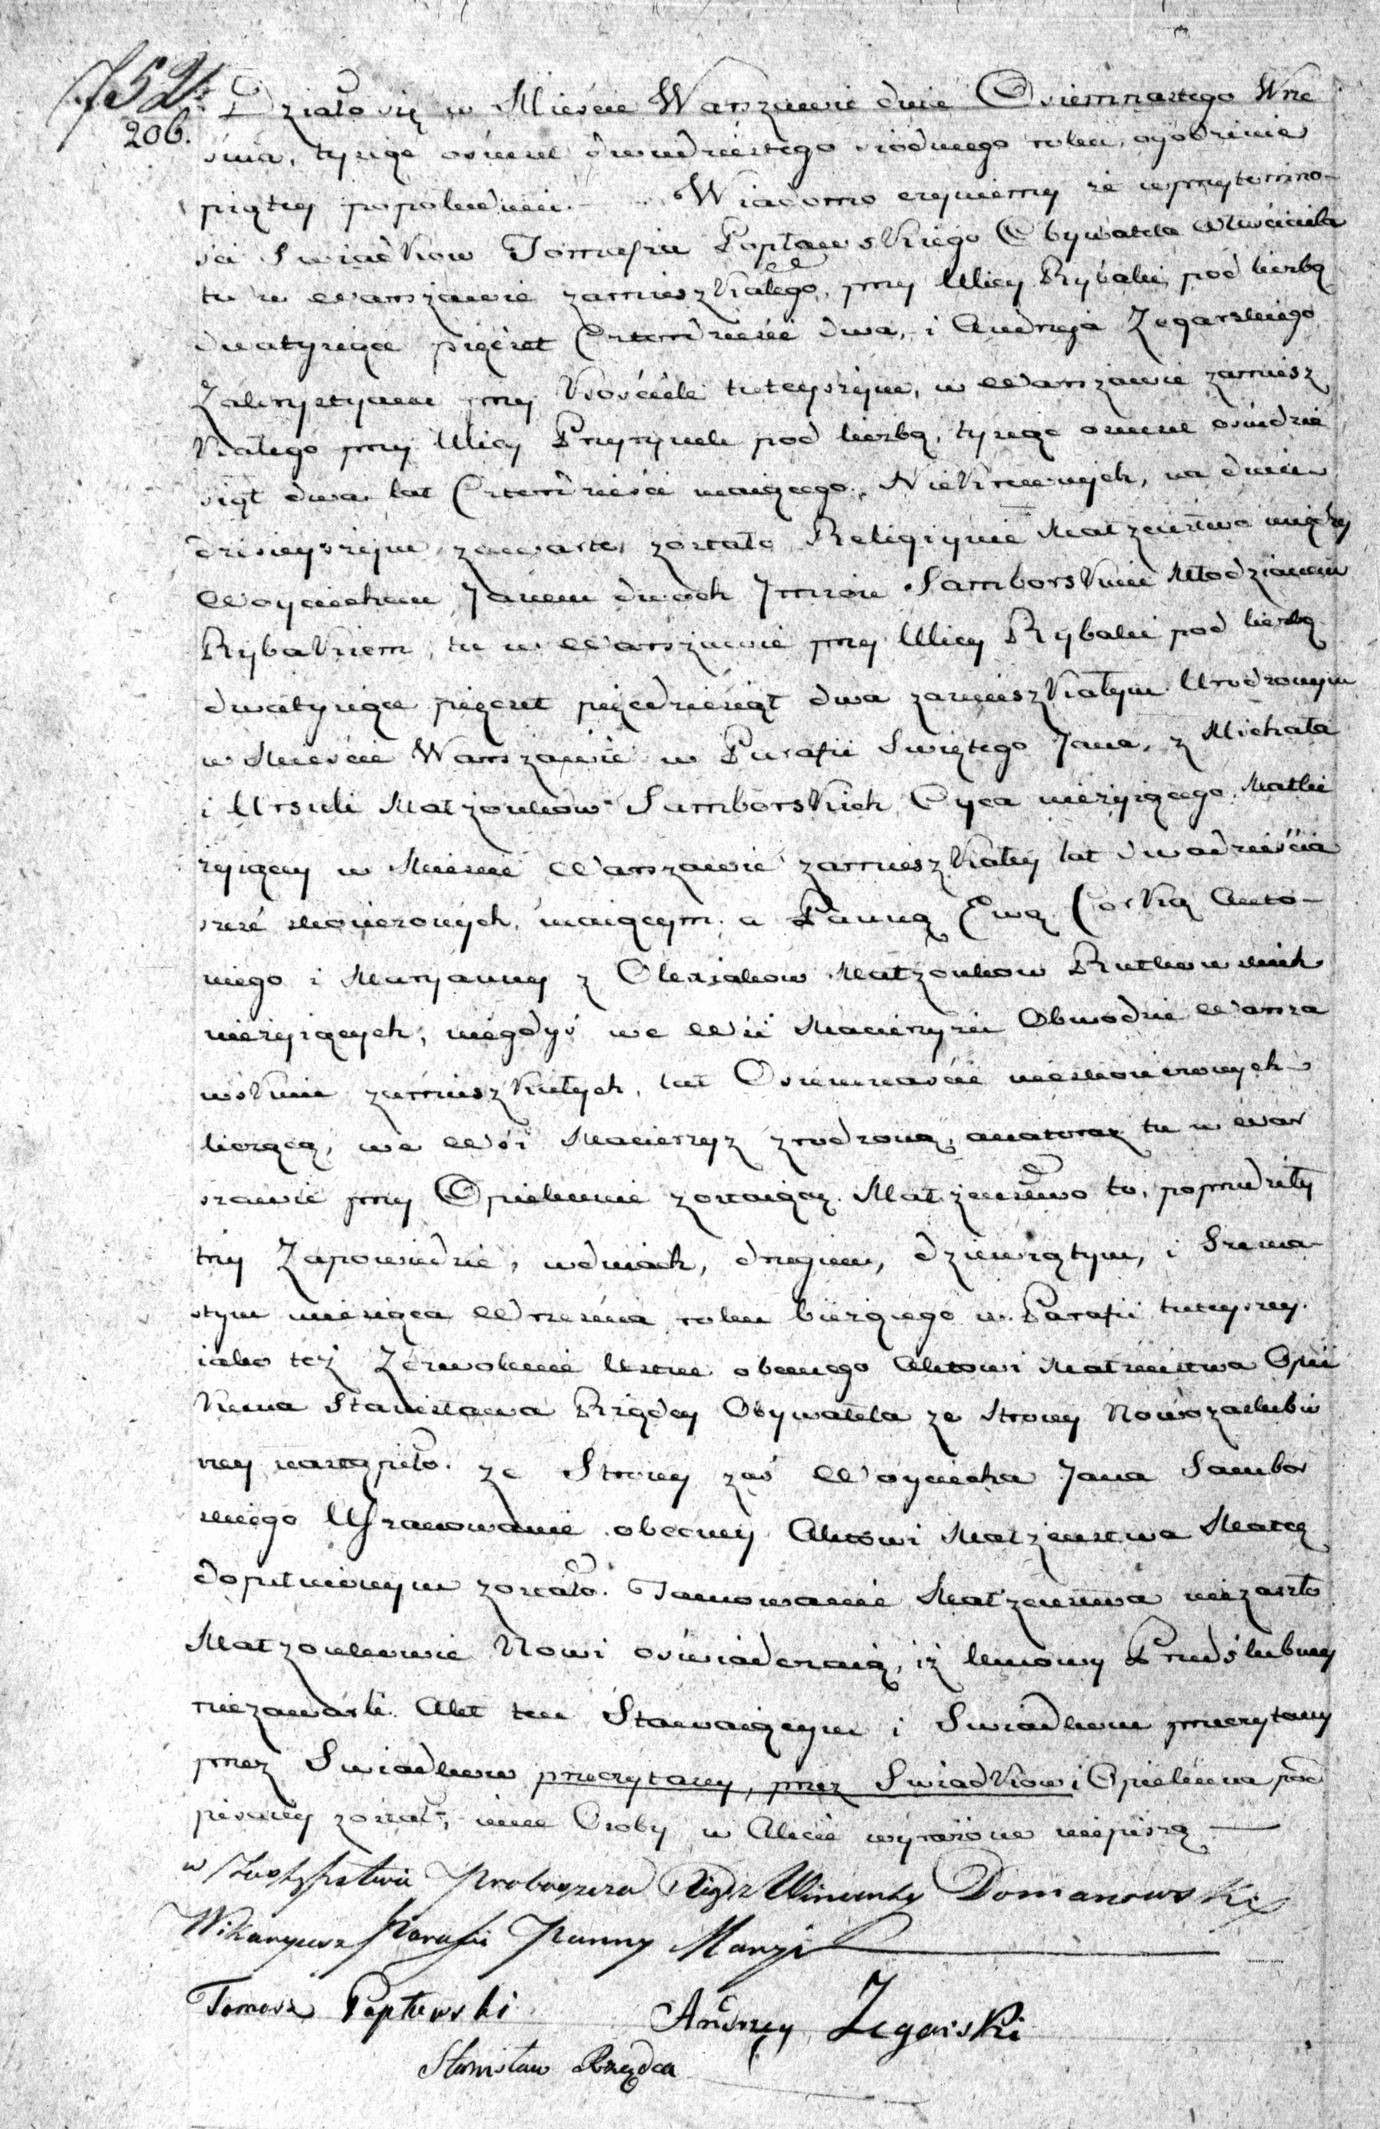 752.
206.
Działo się w Mieście Warszawie dnia Osiemnastego Wrze
śnia, tysiąc ośmset dwudziestego siódmego roku, o godzinie
piątej popołudniu. Wiadomo czyniemy że w przytomno-
ści Swiadków Tomasza Popławskiego Obywatela Właściciela
tu w Warszawie zamieszkałego, przy Ulicy Rybaki pod liczbą
dwatysiące pięćset Czterdzieści dwa, i Andrzeja Zegarskiego
Zakrystyana przy Kościele tuteyszym, w Warszawie zamiesz
kałego przy Ulicy Przyrynek pod liczbą, tysiąc ośmset ośmdzie
siąt dwa lat Czterdzieści maiącego, Niekrewnych, na dniu
dzisieyszym zawarte zostało Religiynie Małżeństwo między
Woyciechem Janem dwóch Imion Samborskim Młodzianem
Rybakiem, tu w Warszawie przy Ulicy Rybaki pod liczbą
dwatysiące pięćset pięćdziesiąt dwa zamieszkałym Urodzonym
w Mieście Warszawie w Parafii Swiętego Jana, z Michała
i Ursuli Małżonków Samborskich Oyca nieżyiącego Matki
żyiącey w Mieście Warszawie zamieszkałey lat dwadzieścia
sześć skończonych, maiącym; a Panną Ewą Corką Anto-
niego i Maryanny z Olesiaków Małżonków Rutkowskich
nieżyiących, niegdyś we Wsi Macierzyszu Obwodzie Warsza
wskim zamieszkałych, lat Osiemnaście nieskończonych
liczącą, we Wsi Macierzysz zrodzoną, a na teraz tu w War
szawie przy Opiekunie zostaiącą. Małżeństwo to, poprzedziły
trzy Zapowiedzie, w dniach, drugim, dziewiątym, i Szesna-
stym miesiąca Września roku bieżącego w Parafii tuteyszey
iako też Zezwolenie ustne obecnego Aktowi Małżeństwa Opie
kuna Stanisława Rządcy Obywatela ze Strony Nowozaślubio
ney nastąpiło. Ze Strony zaś Woyciecha Jana Sambor
skiego Uszanowanie obecney Aktowi Małżeństwa Matcę
dopełnionym zostało. Tamowanie Małżeństwa niezaszło
Małżonkowie Nowi oświadczaią, iż Umowy Przedślubney
niezawarli. Akt ten Stawaiącym i Swiadkom przeczytany
przez Swiadków przeczytany, przez Swiadków i Opiekuna pod
pisany został, inne Osoby w Akcie wyrażone niepiszą
w Zastępstwie Proboszcza Xiądz Wincenty Domanowski
Wikaryusz Parafii Panny Maryi
Tomasz Popławski Andrzey Zegarski
Stanisław Rządca